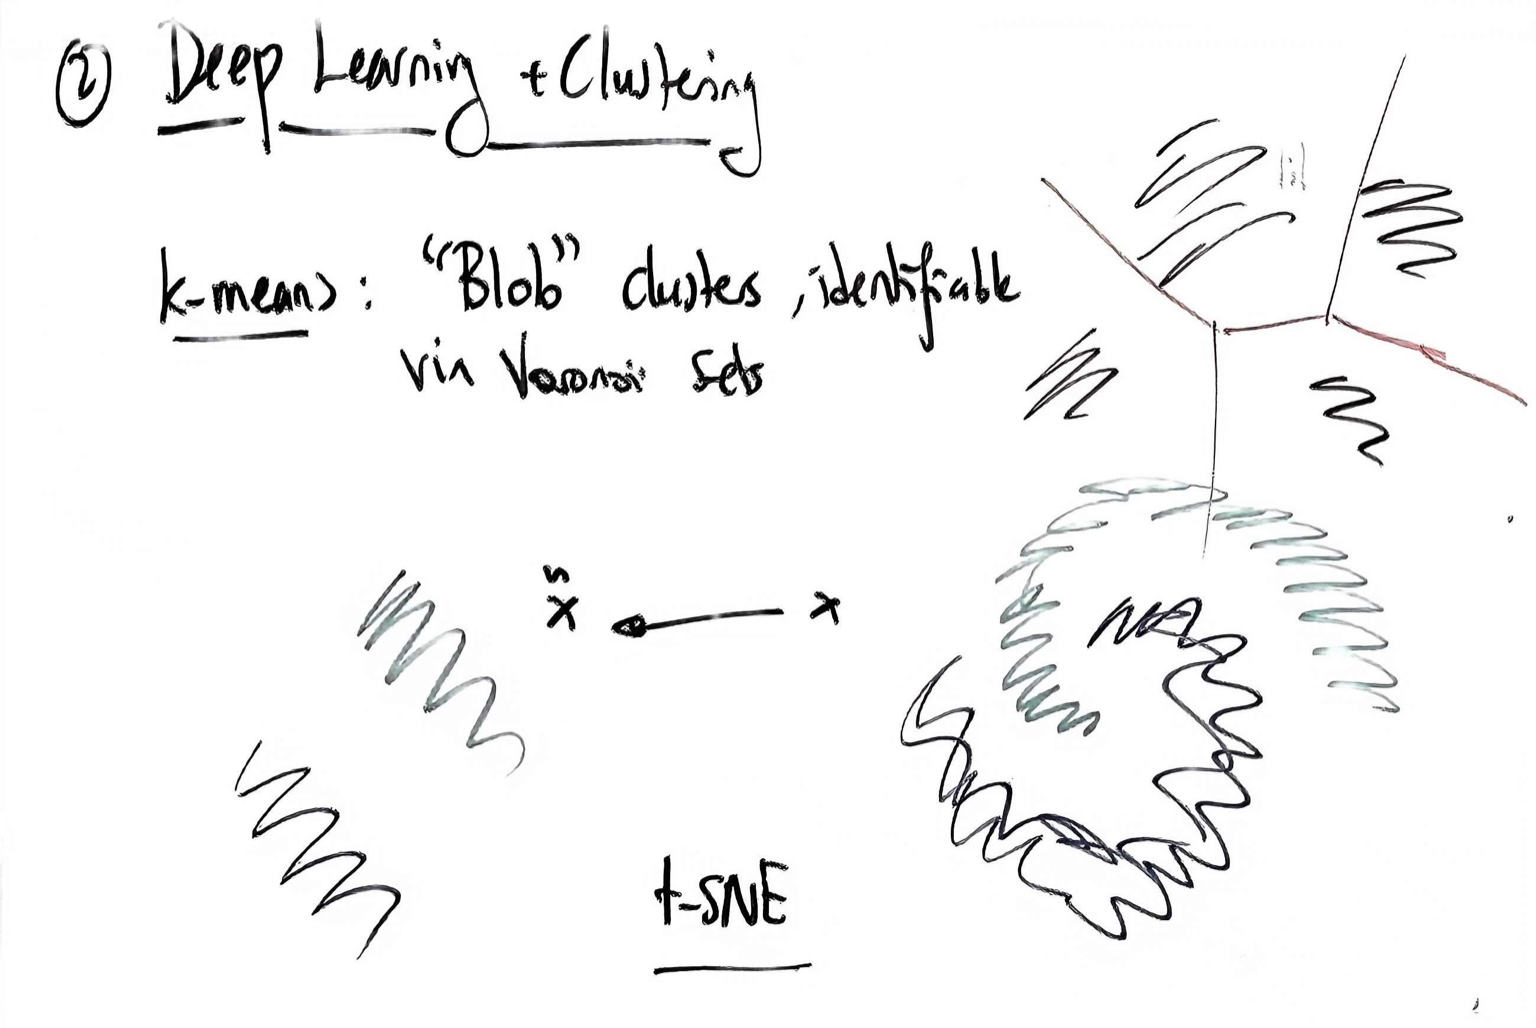 ② Deep Learning + Clustering
k-means: "Blob" clusters, identifiable
via Voronoi Sets
x̃ ← x
t-SNE